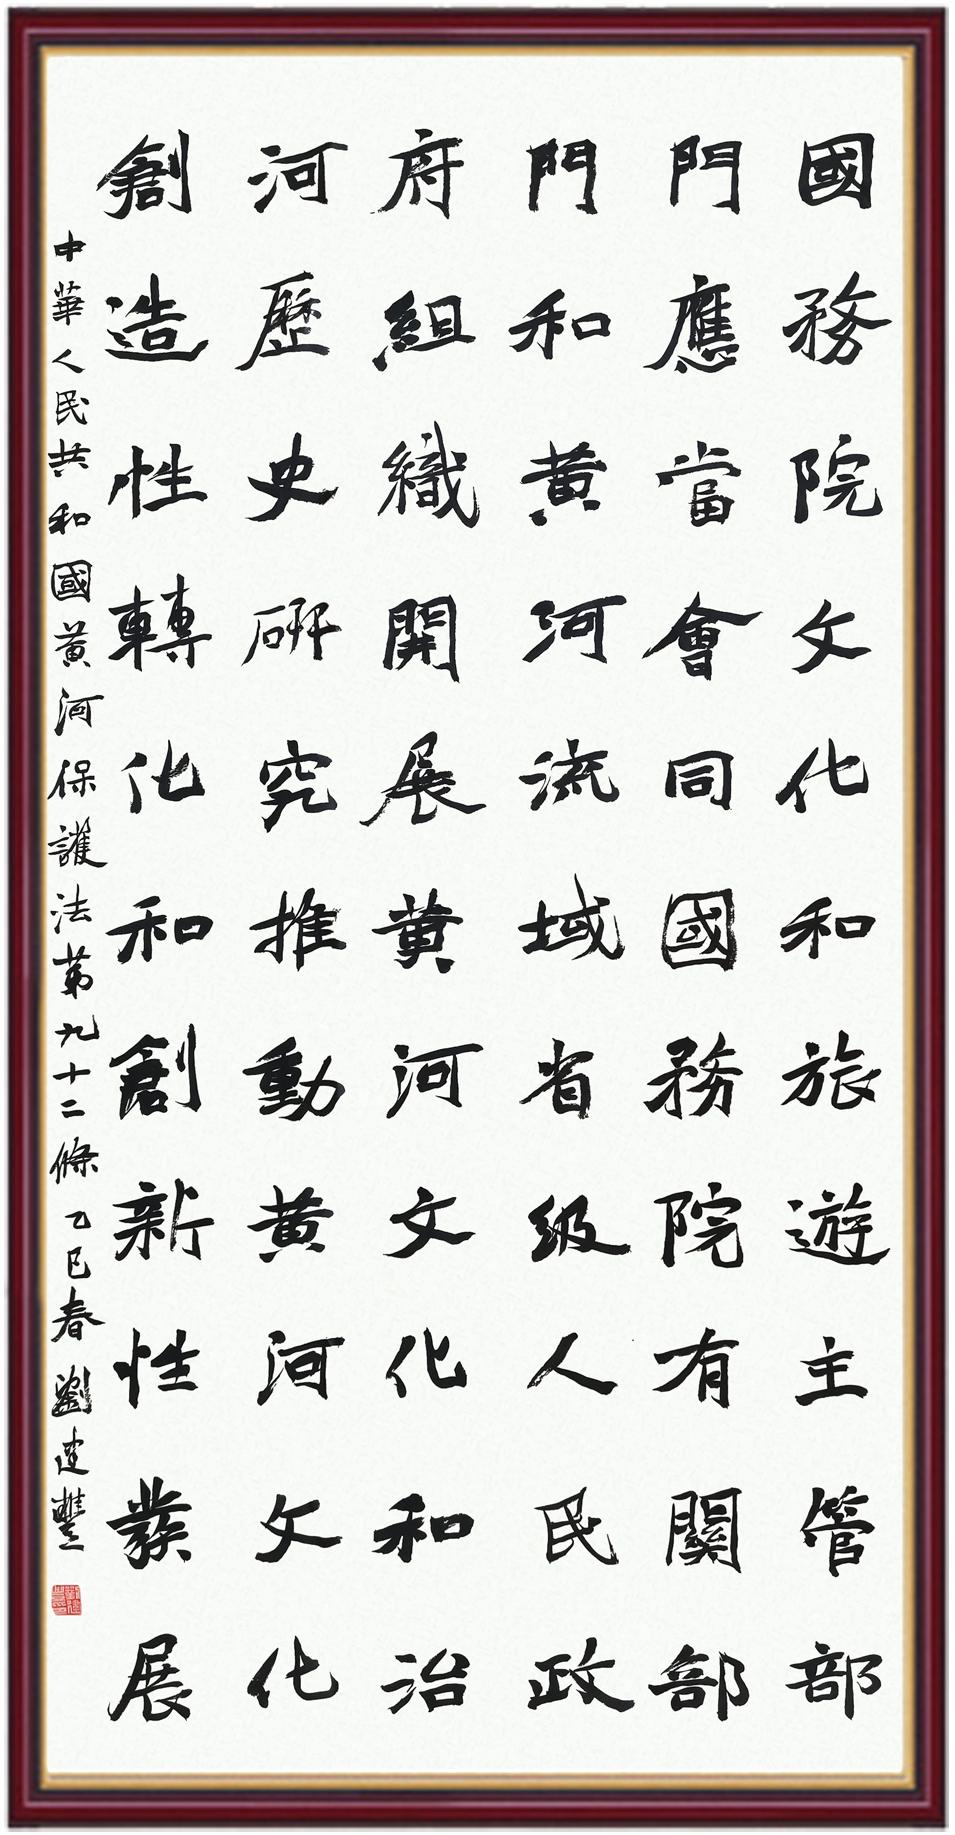 國務院文化和旅遊主管部
門應當會同國務院有關部
門和黃河流域省級人民政
府組織開展黃河文化和治
河歷史研究推動黃河文化
創造性轉化和創新性發展
中華人民共和國黃河保護法第九十二條 乙巳春 劉建豐